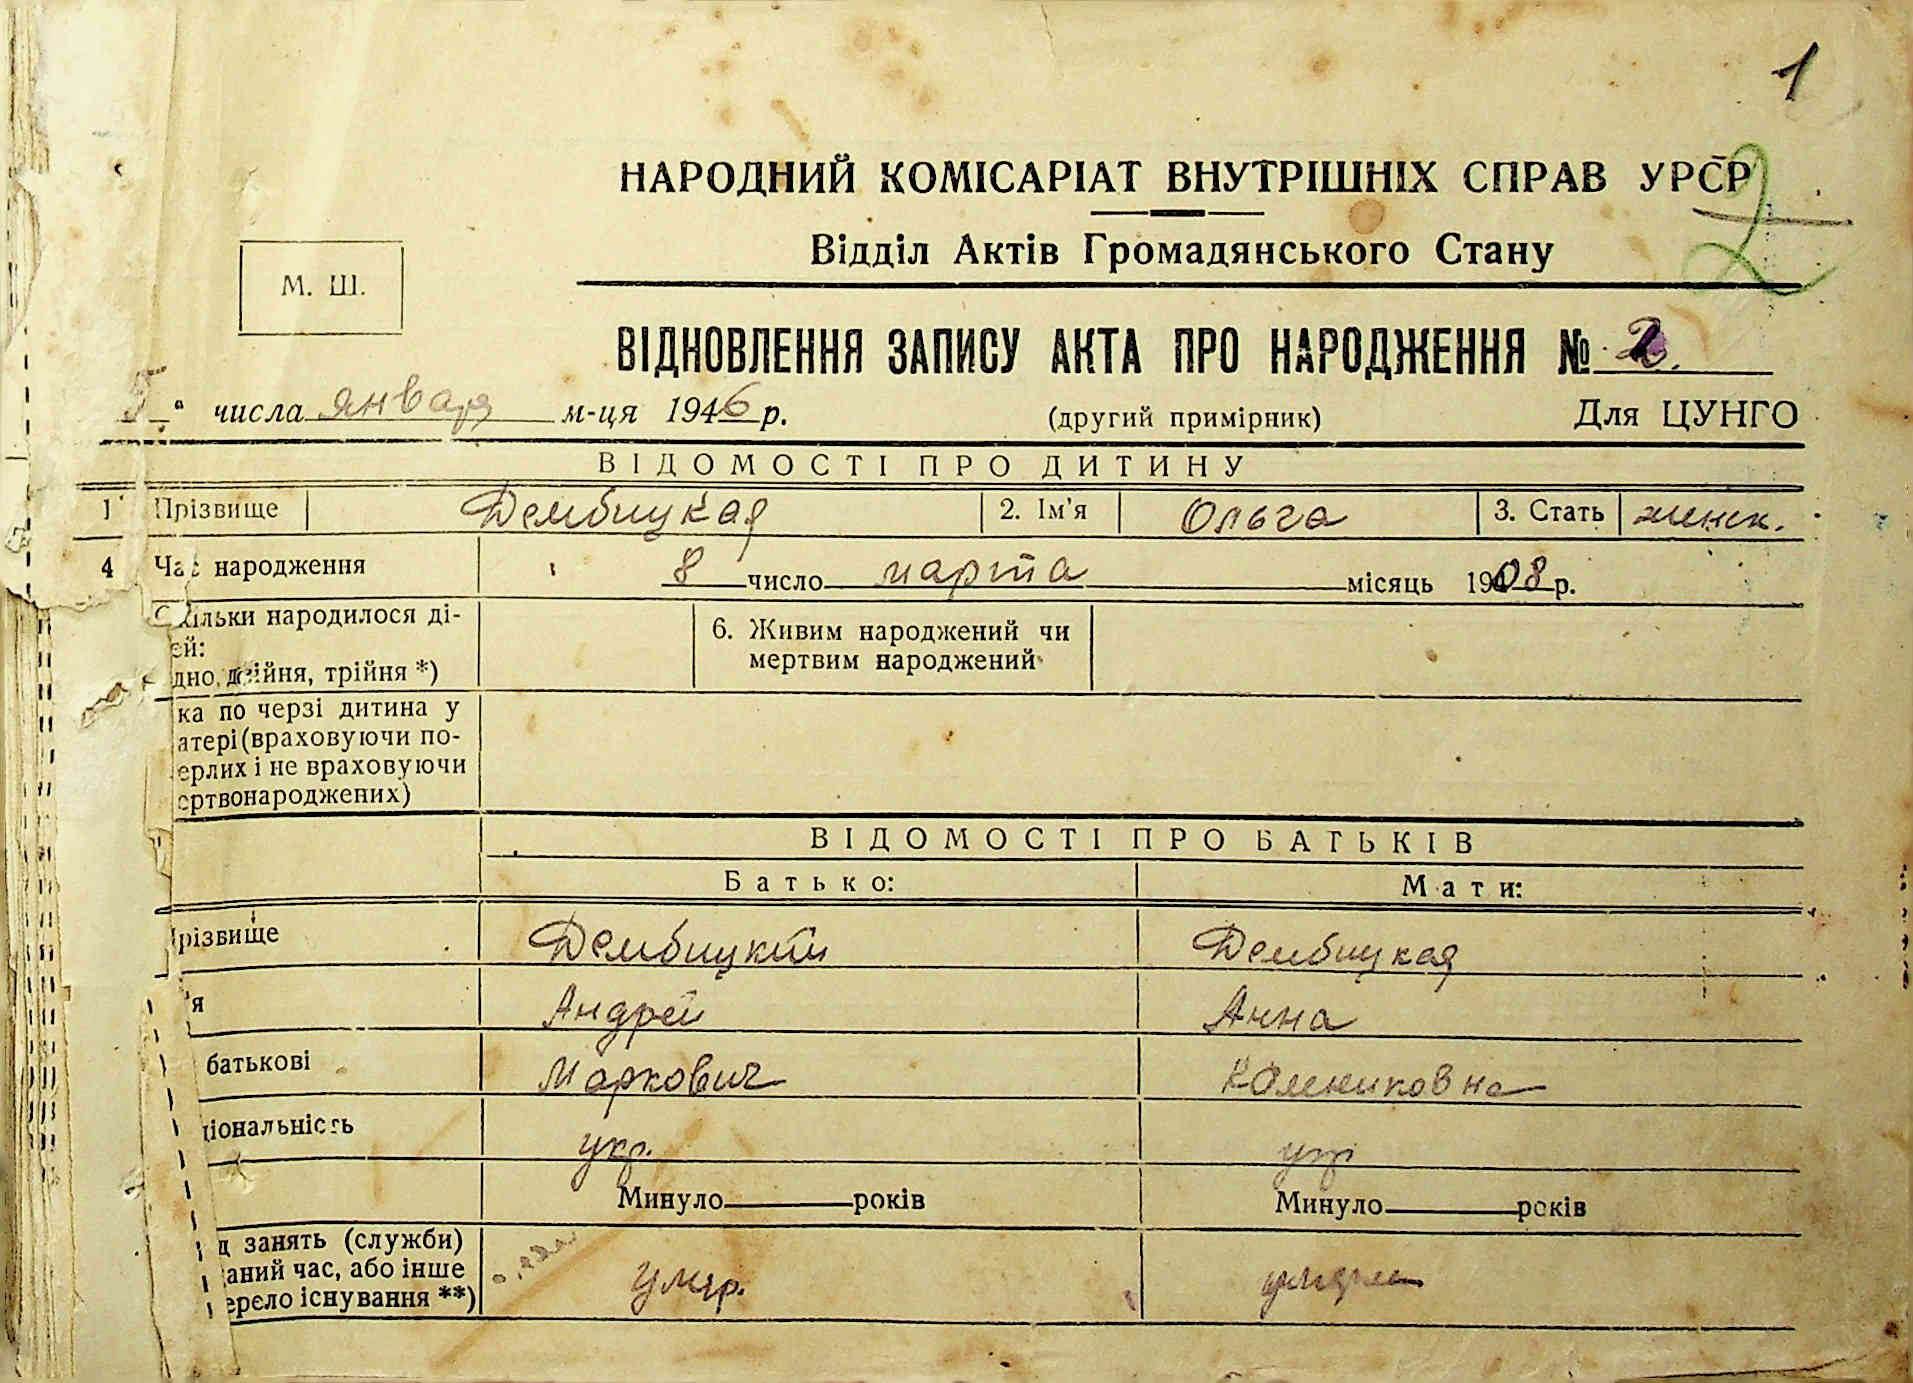 1
2
НАРОДНИЙ КОМІСАРІАТ ВНУТРІШНІХ СПРАВ УРСР
Відділ Актів Громадянського Стану
М. Ш.
ВІДНОВЛЕННЯ ЗАПИСУ АКТА ПРО НАРОДЖЕННЯ № 2.
5 " числа января м-ця 1946 р. (другий примірник) Для ЦУНГО
ВІДОМОСТІ ПРО ДИТИНУ
1 Прізвище Дембицкая 2. Ім'я Ольга 3. Стать женск.
4 Час народження 8 число марта місяць 1908 р.
Скільки народилося ді-
ей:
дно, двійня, трійня *)
6. Живим народжений чи
мертвим народжений
ка по черзі дитина у
атері (враховуючи по-
ерлих і не враховуючи
ертвонароджених)
ВІДОМОСТІ ПРО БАТЬКІВ
Батько: Мати:
різвище Дембицкий Дембицкая
'я Андрей Анна
батькові Маркович
ціональність укр. укр
Минуло років Минуло років
д занять (служби)
аний час, або інше
ерело існування **)
умер. умерла